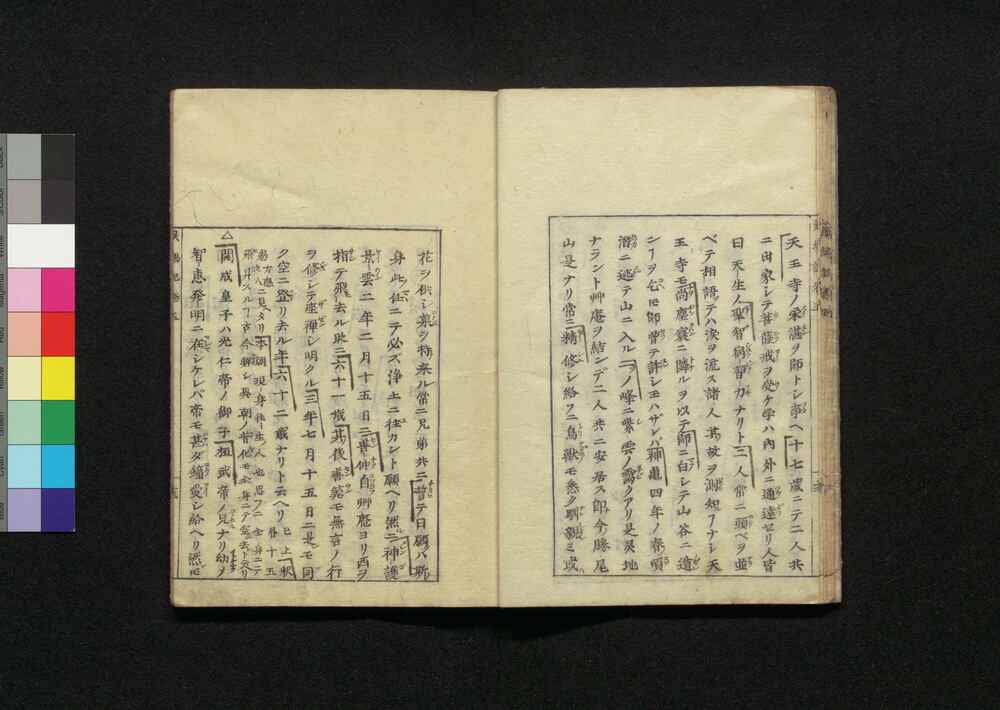 天王寺ノ栄湛ヲ師トシ事ヘ十七歳ニテ二人共
ニ出家シテ菩薩戒ヲ受ケ学ハ内外ニ通達セリ人皆
曰天生ノ聖智宿習カナリト二人常ニ頭ベヲ並
ベテ相語テハ涙ヲ流ス諸人其故ヲ測知フナシ天
王寺モ尚塵寰ニ隣ルヲ以テ師ニ白シテ山谷ニ遁
ンフヲ乞𪜈師曽テ許シ玉ハザレバ神亀四年ノ春頃
潜ニ逃テ山ニ入ル一ノ峰ニ紫雲ノ靄クアリ是異地
ナラント艸庵ヲ結ンデ二人共ニ安居ス即今勝尾
山是ナリ常ニ精修シ給フニ鳥獣モ悉ク馴親ミ或
花ヲ供シ菓ヲ持来ル常ニ兄弟共ニ昔テ曰願ハ斯
身此侭ニテ必ズ浄土ニ往カント願ヘリ然ニ神護
景雲二年二月十五日ニ善仲自艸庵ヨリ西ヲ
指テ飛去ル時ニ六十一歳其後善算モ無言ノ行
ヲ修シテ座禅シ明クル三年七月十五日ニ是モ同
ク空ニ登リ去ル年六十二歳ナリト云ヘリ已上釈
書十五
△開成皇子ハ光仁帝ノ御子桓武帝ノ兄ナリ幼ヨ
智恵発明ニ在シケレバ帝モ甚ダ鍾愛シ給ヘリ然𪜈